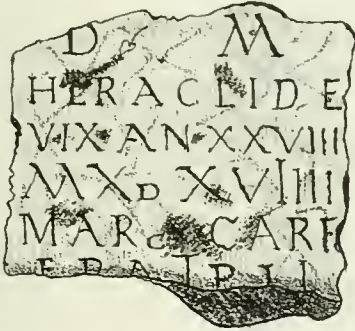 D M
HERACLIDE
VIX AN XXVIII
M X D XVIIII
MARC CARF